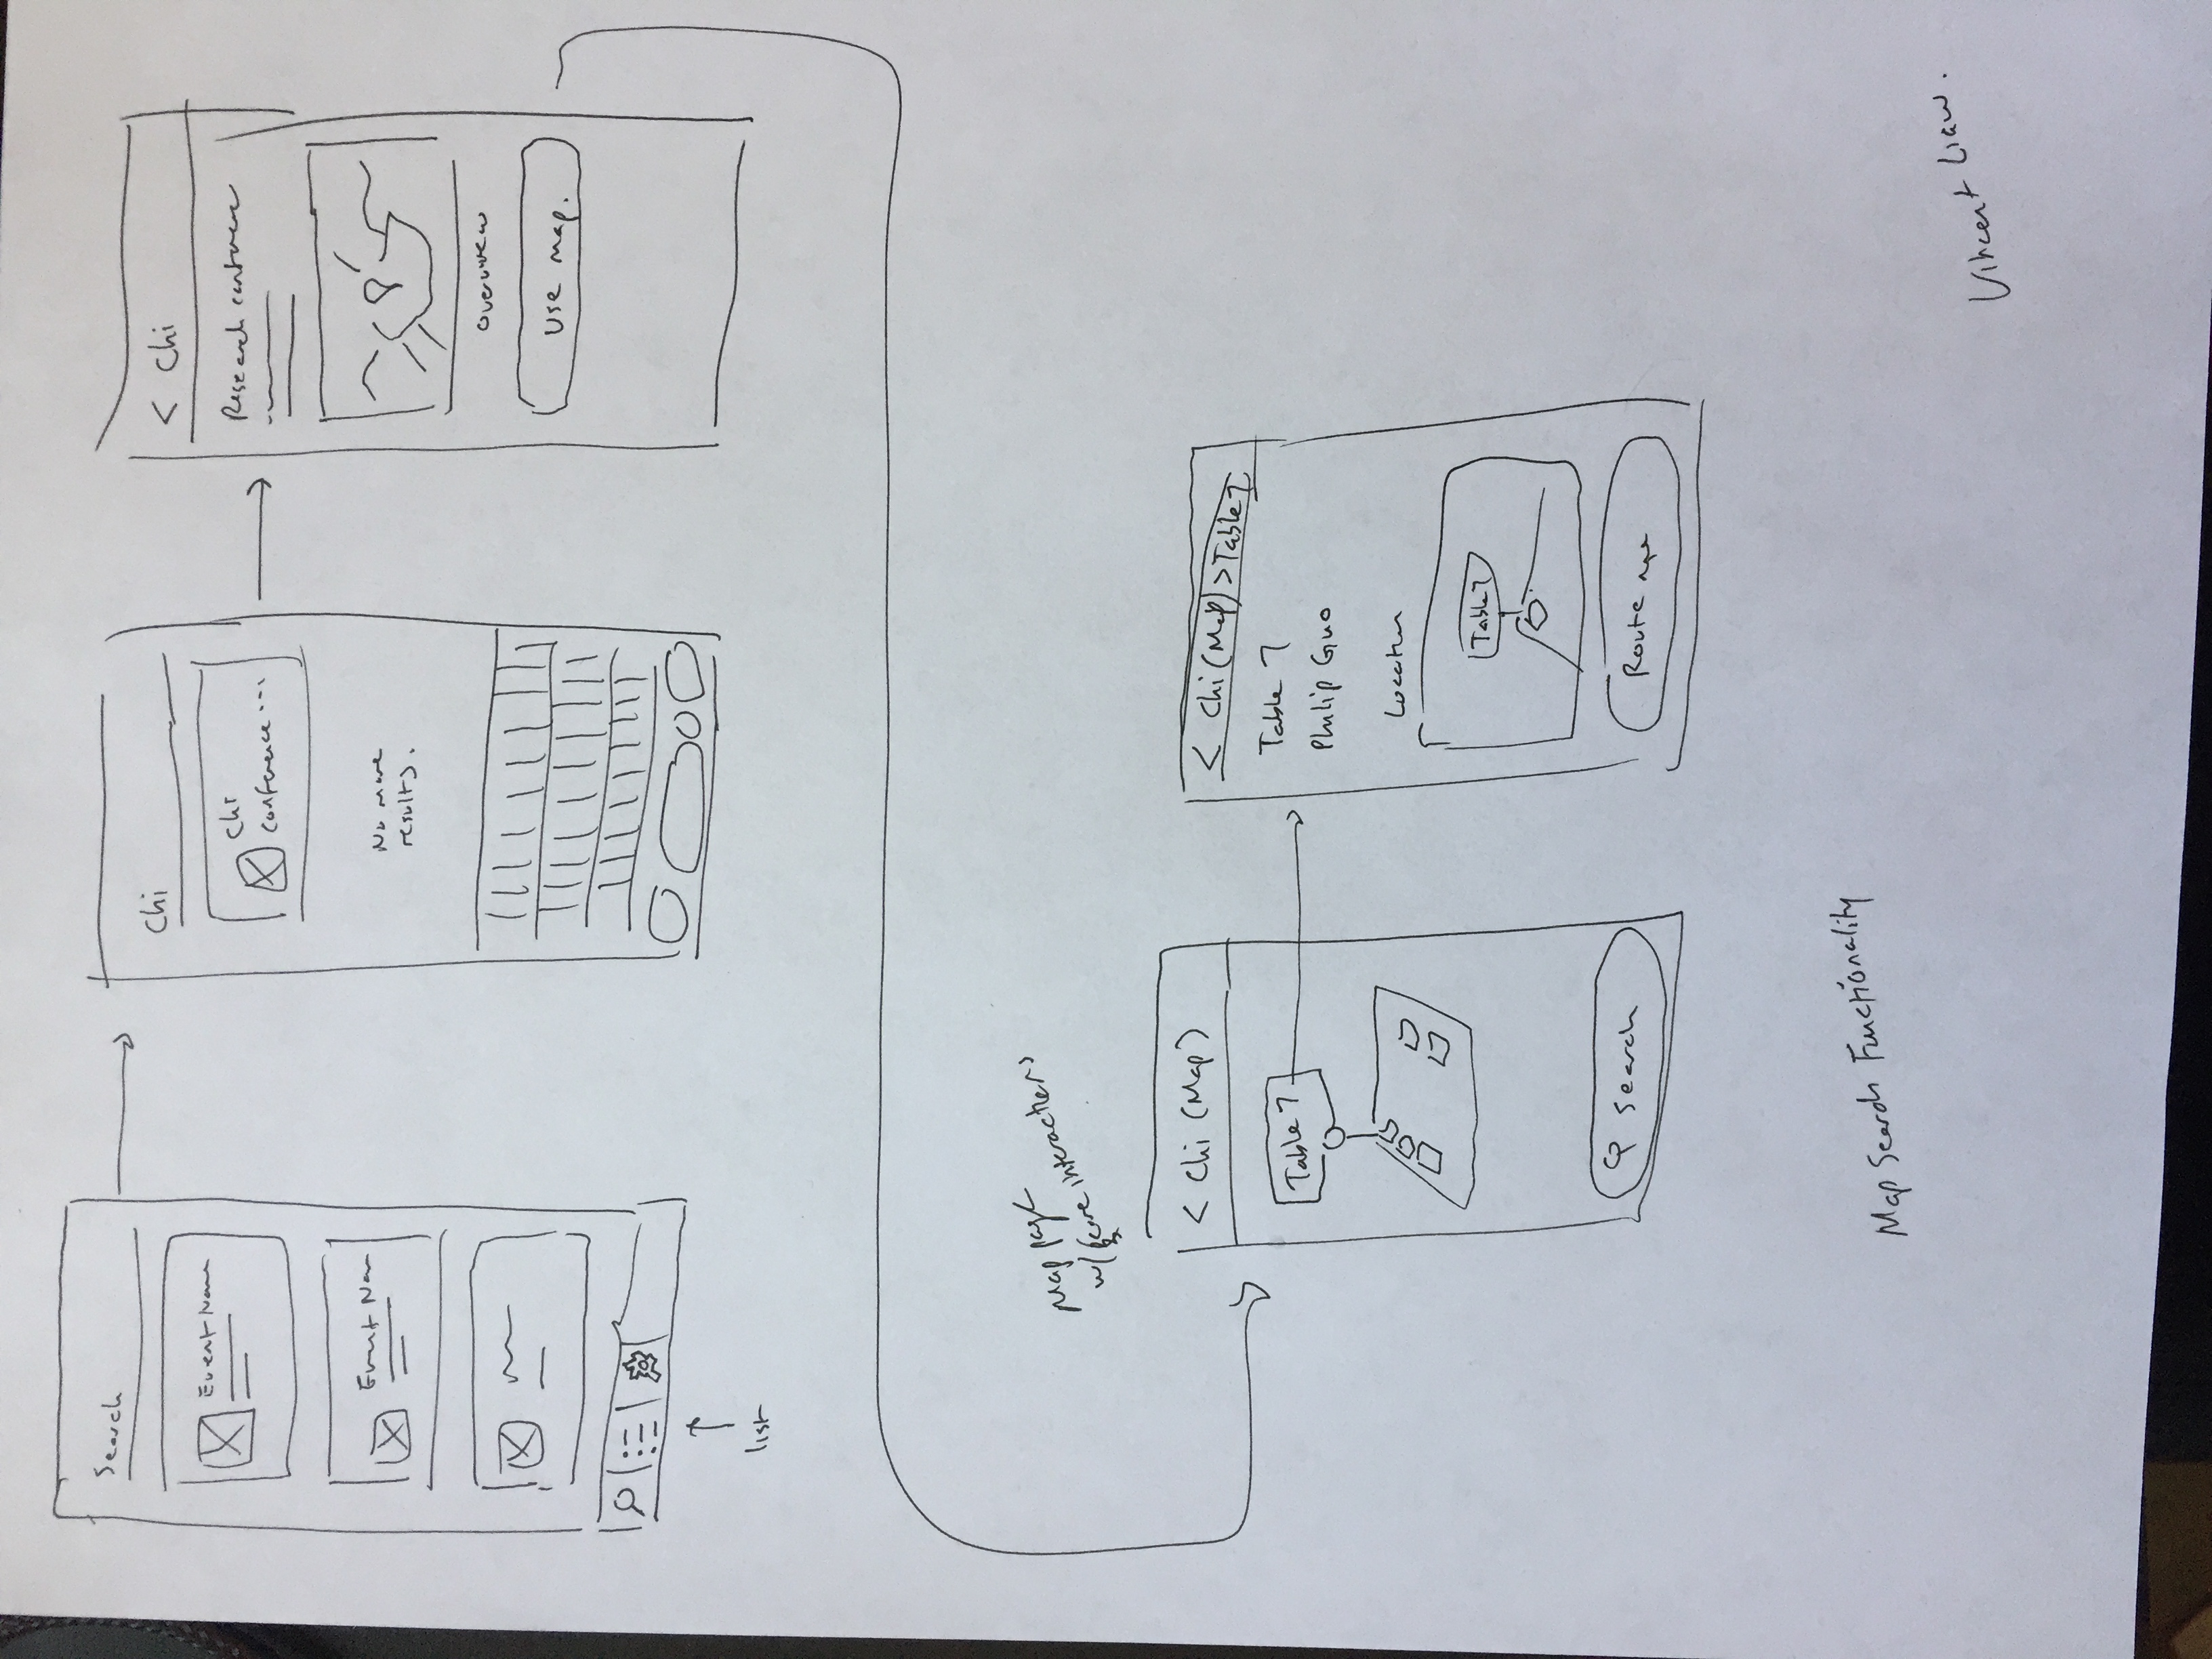 Search
Event Name
Event Nam
list
Chi
Chi
conference ...
No more
results.
< Chi
Research conference
overview
Use map.
Map page
w/ core interactions
< Chi (Map)
Table 7
Search
< Chi (Map) > Table 7
Table 7
Philip Guo
Location
Table 7
Route me
Map Search Functionality
Vincent Liaw.